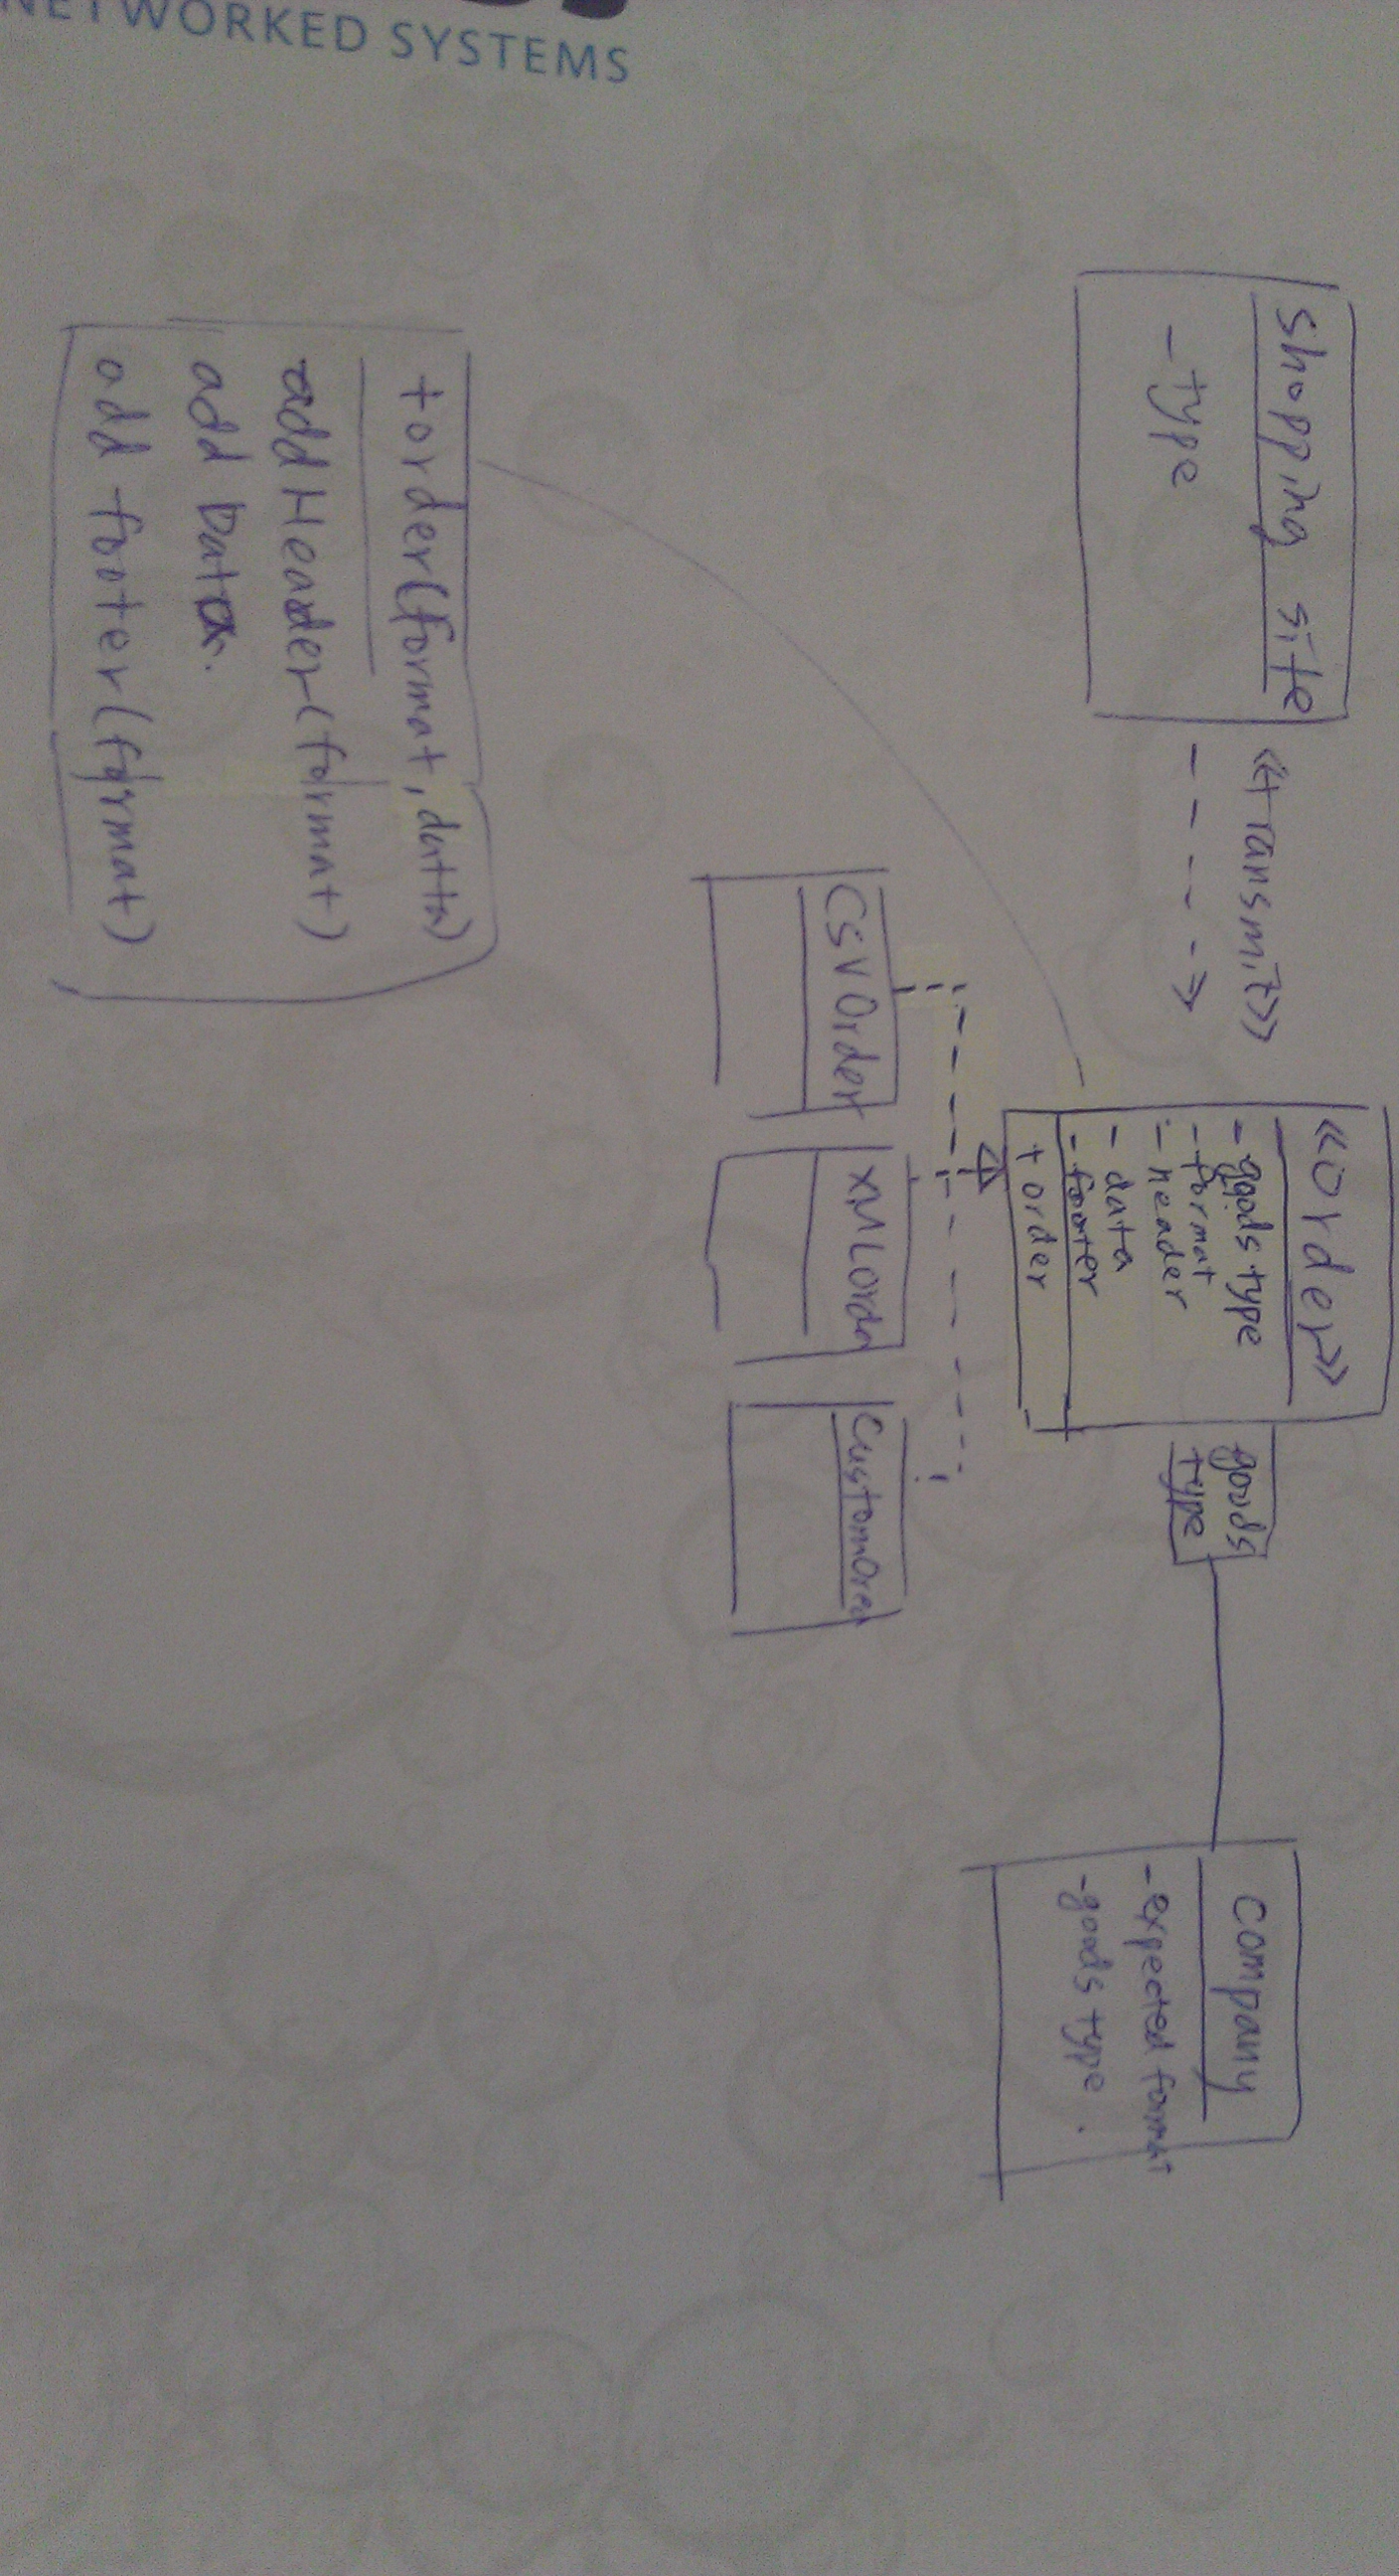 NETWORKED SYSTEMS
shopping site
- type
<<transmit>>
<<order>>
- goods type
- format
- header
- data
- footer
+ order
goods
type
company
- expected format
- goods type .
CSVOrder
XMLorder
CustomOrer
+ order(format, data)
addHeader(format)
add Data.
add footer(format)